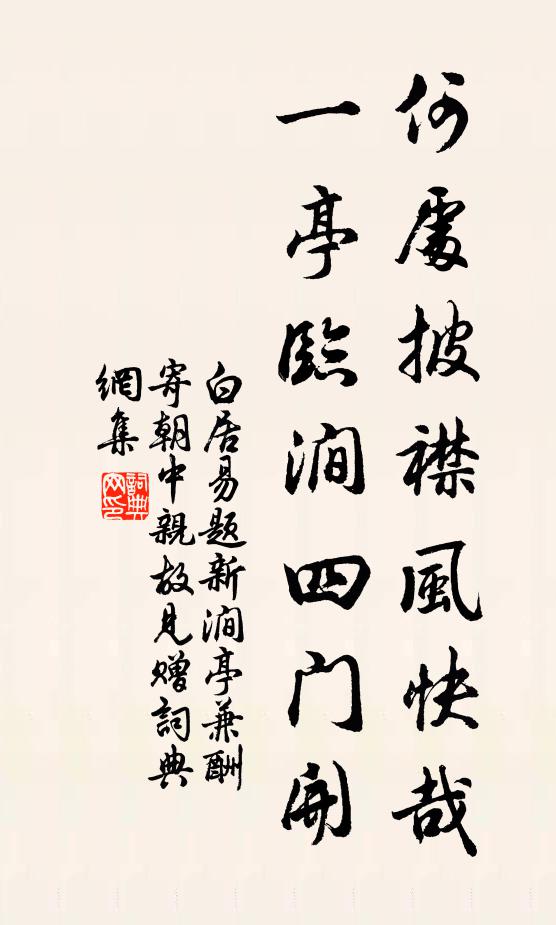 何處披襟風快哉
一亭臨澗四门開
白居易题新澗亭兼酬
寄朝中親故見赠詞典
網集
詞典
网印